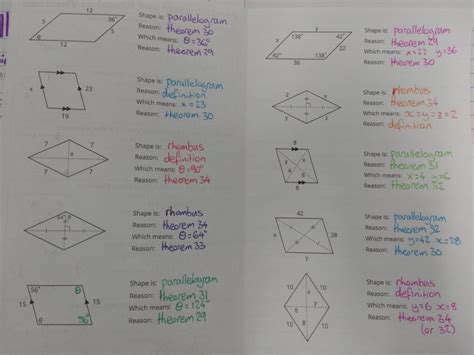 12
5
36°
5
θ
12
Shape is: parallelogram
Reason: theorem 30
Which means: θ=36°
Reason: theorem 29
x
23
19
Shape is: parallelogram
Reason: definition
Which means: x = 23
Reason: theorem 30
7
7
7
7
Shape is: rhombus
Reason: definition
Which means: θ=90°
Reason: theorem 34
64°
θ
Shape is: rhombus
Reason: theorem 34
Which means: θ=64°
Reason: theorem 33
56°
θ
15
15
Shape is: parallelogram
Reason: theorem 31
Which means: θ=124°
Reason: theorem 29
y
138°
x
22
42°
138°
42°
36
Shape is: parallelogram
Reason: theorem 29
Which means: x=22 y=36
Reason: theorem 30
2
x
Shape is: rhombus
Reason: theorem 34
Which means: x=y=z=2
Reason: definition
8
8
Shape is: parallelogram
Reason: theorem 31
Which means: x=4 y=6
Reason: theorem 32
42
x
28
y
Shape is: parallelogram
Reason: theorem 32
Which means: y=42 x=28
Reason: theorem 30
10
10
x
y
6
8
10
10
Shape is: rhombus
Reason: definition
Which means: y=6 x=8
Reason: theorem 34
(or 32)